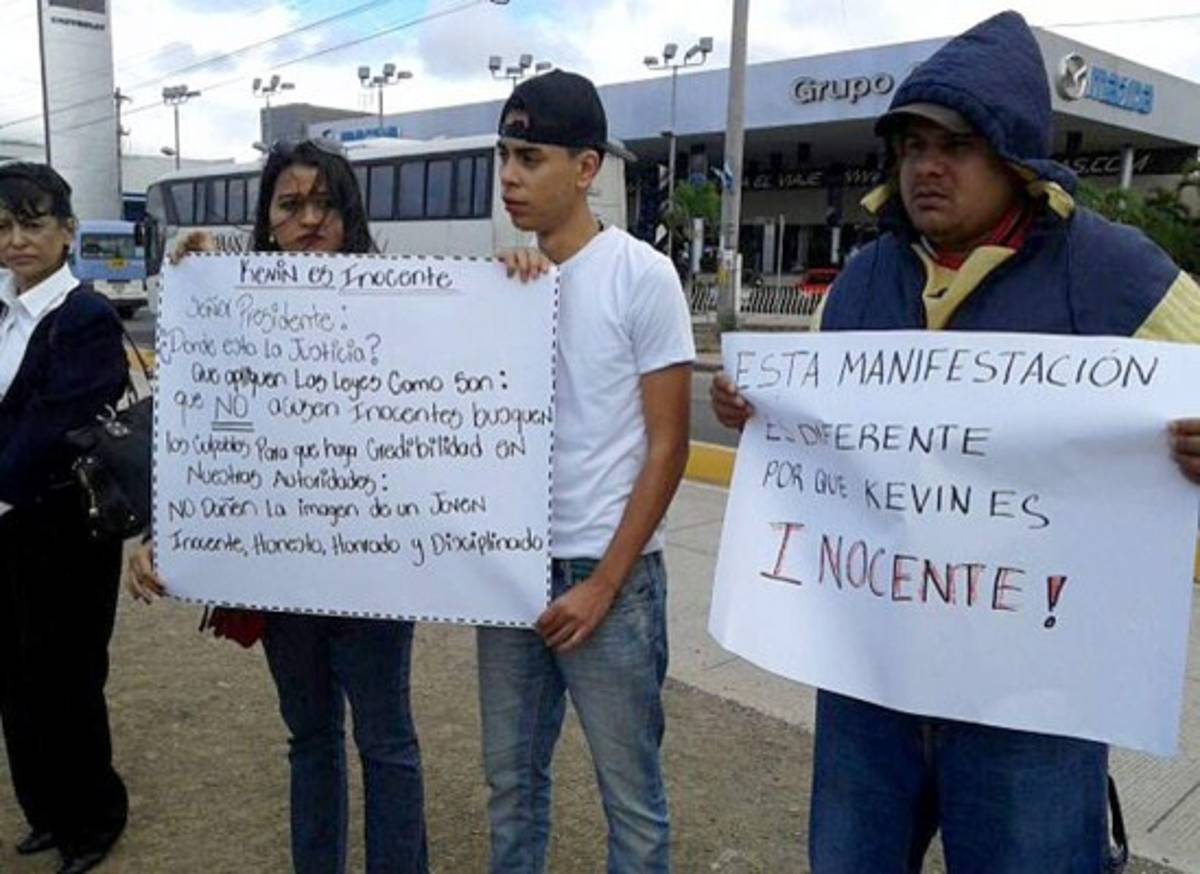 CHEVROLET
Grupo
KEVIN ES INOCENTE
Señor Presidente:
¿Donde esta La Justicia?
Que apliquen Las Leyes Como Son:
que NO acusen Inocentes busquen
los Culpables Para que haya Credibilidad en
Nuestras Autoridades:
NO Dañen La imagen de un Joven
Inocente, Honesto, Honrado y Disciplinado
ESTA MANIFESTACIÓN
ES DIFERENTE
POR QUE KEVIN ES
INOCENTE!